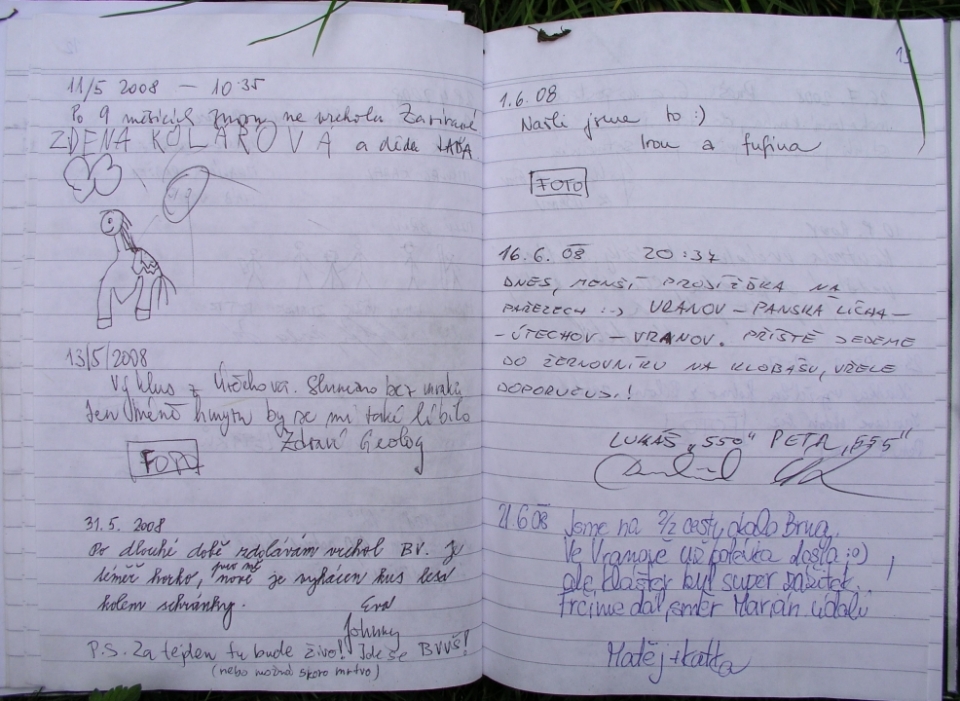 11/5 2008 — 10:35
Po 9 měsících znovu na vrcholu
ZDENA KOLÁŘOVÁ a děda LÁĎA
13/5/2008
Výklus z Útěchova. Slunečno bez mraků
Jen méně hmyzu by se mi také líbilo
Zdraví Geolog
FOTO
31.5. 2008
Po dlouhé době zdolávám vrchol BV. Je
téměř horko, pro mě
nově je vykácen kus lesa
kolem schránky.
Eva
Johnny
P.S. Za tejden tu bude živo! Jde se BVVŠ!
(nebo možná skoro mrtvo)
1.6.08
Našli jsme to :)
a fufina
FOTO
16.6. 08 20:37
DNES, MENŠÍ PROJÍŽĎKA NA
PAŘEZECH :-) VRANOV – PANSKÁ LÍCHA –
- ÚTECHOV – VRANOV. PŘÍŠTĚ JEDEME
DO ŽERNOVNÍKU NA KLOBÁSU, VŘELE
DOPORUČUJI!
LUKÁŠ „550" PETR „555"
21.6 08 Jsme na 1/2 cesty okolo Brna.
Ve Vranově už polévka došla :o)
ale klášter byl super zážitek.
Frčíme dál, směr Marián. údolí
Matěj + Katka